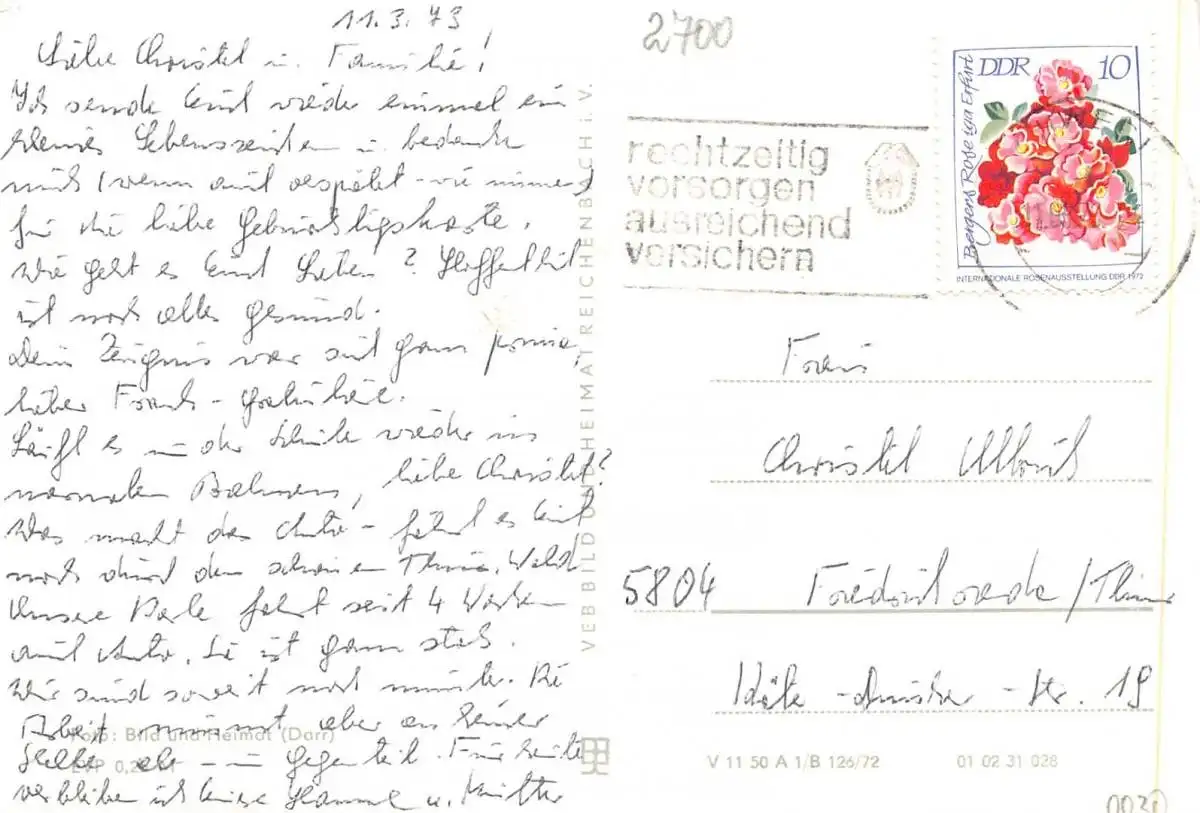 11.3.73
Liebe Christel u. Familie!
Ich sende Euch wieder einmal ein
kleines Lebenszeichen u. bedanke
mich (wenn auch verspätet - wie immer)
für die liebe Geburtstagskarte.
Wie geht es Euch Lieben? Hoffentlich
ist noch alles gesund.
Dein Zeugnis war ganz prima,
lieber Frank - gratuliere.
Läuft es in der Schule wieder in
normalen Bahnen, liebe Christel?
Was macht das Auto - fährt es Euch
noch durch den schönen Thür. Wald
Unsere Perle fährt seit 4 Wochen
auch Auto. Sie ist ganz stolz.
Wir sind soweit noch munter. Die
Arbeit nimmt aber an keiner
Stelle ab - im Gegenteil. Für heute
verbleiben u. Mutter
Foto: Bild und Heimat (Darr)
EVP 0,20 M
VEB BILD UND HEIMAT REICHENBACH i. V.
2700
rechtzeitig
vorsorgen
ausreichend
versichern
DDR 10
Bergers Rose iga Erfurt
INTERNATIONALE ROSENAUSSTELLUNG DDR 1972
Frau
Christel Ullrich
5804 Friedrichroda / Thür
Käte -Duncker -Str. 19
V 11 50 A 1/B 126/72 01 02 31 028